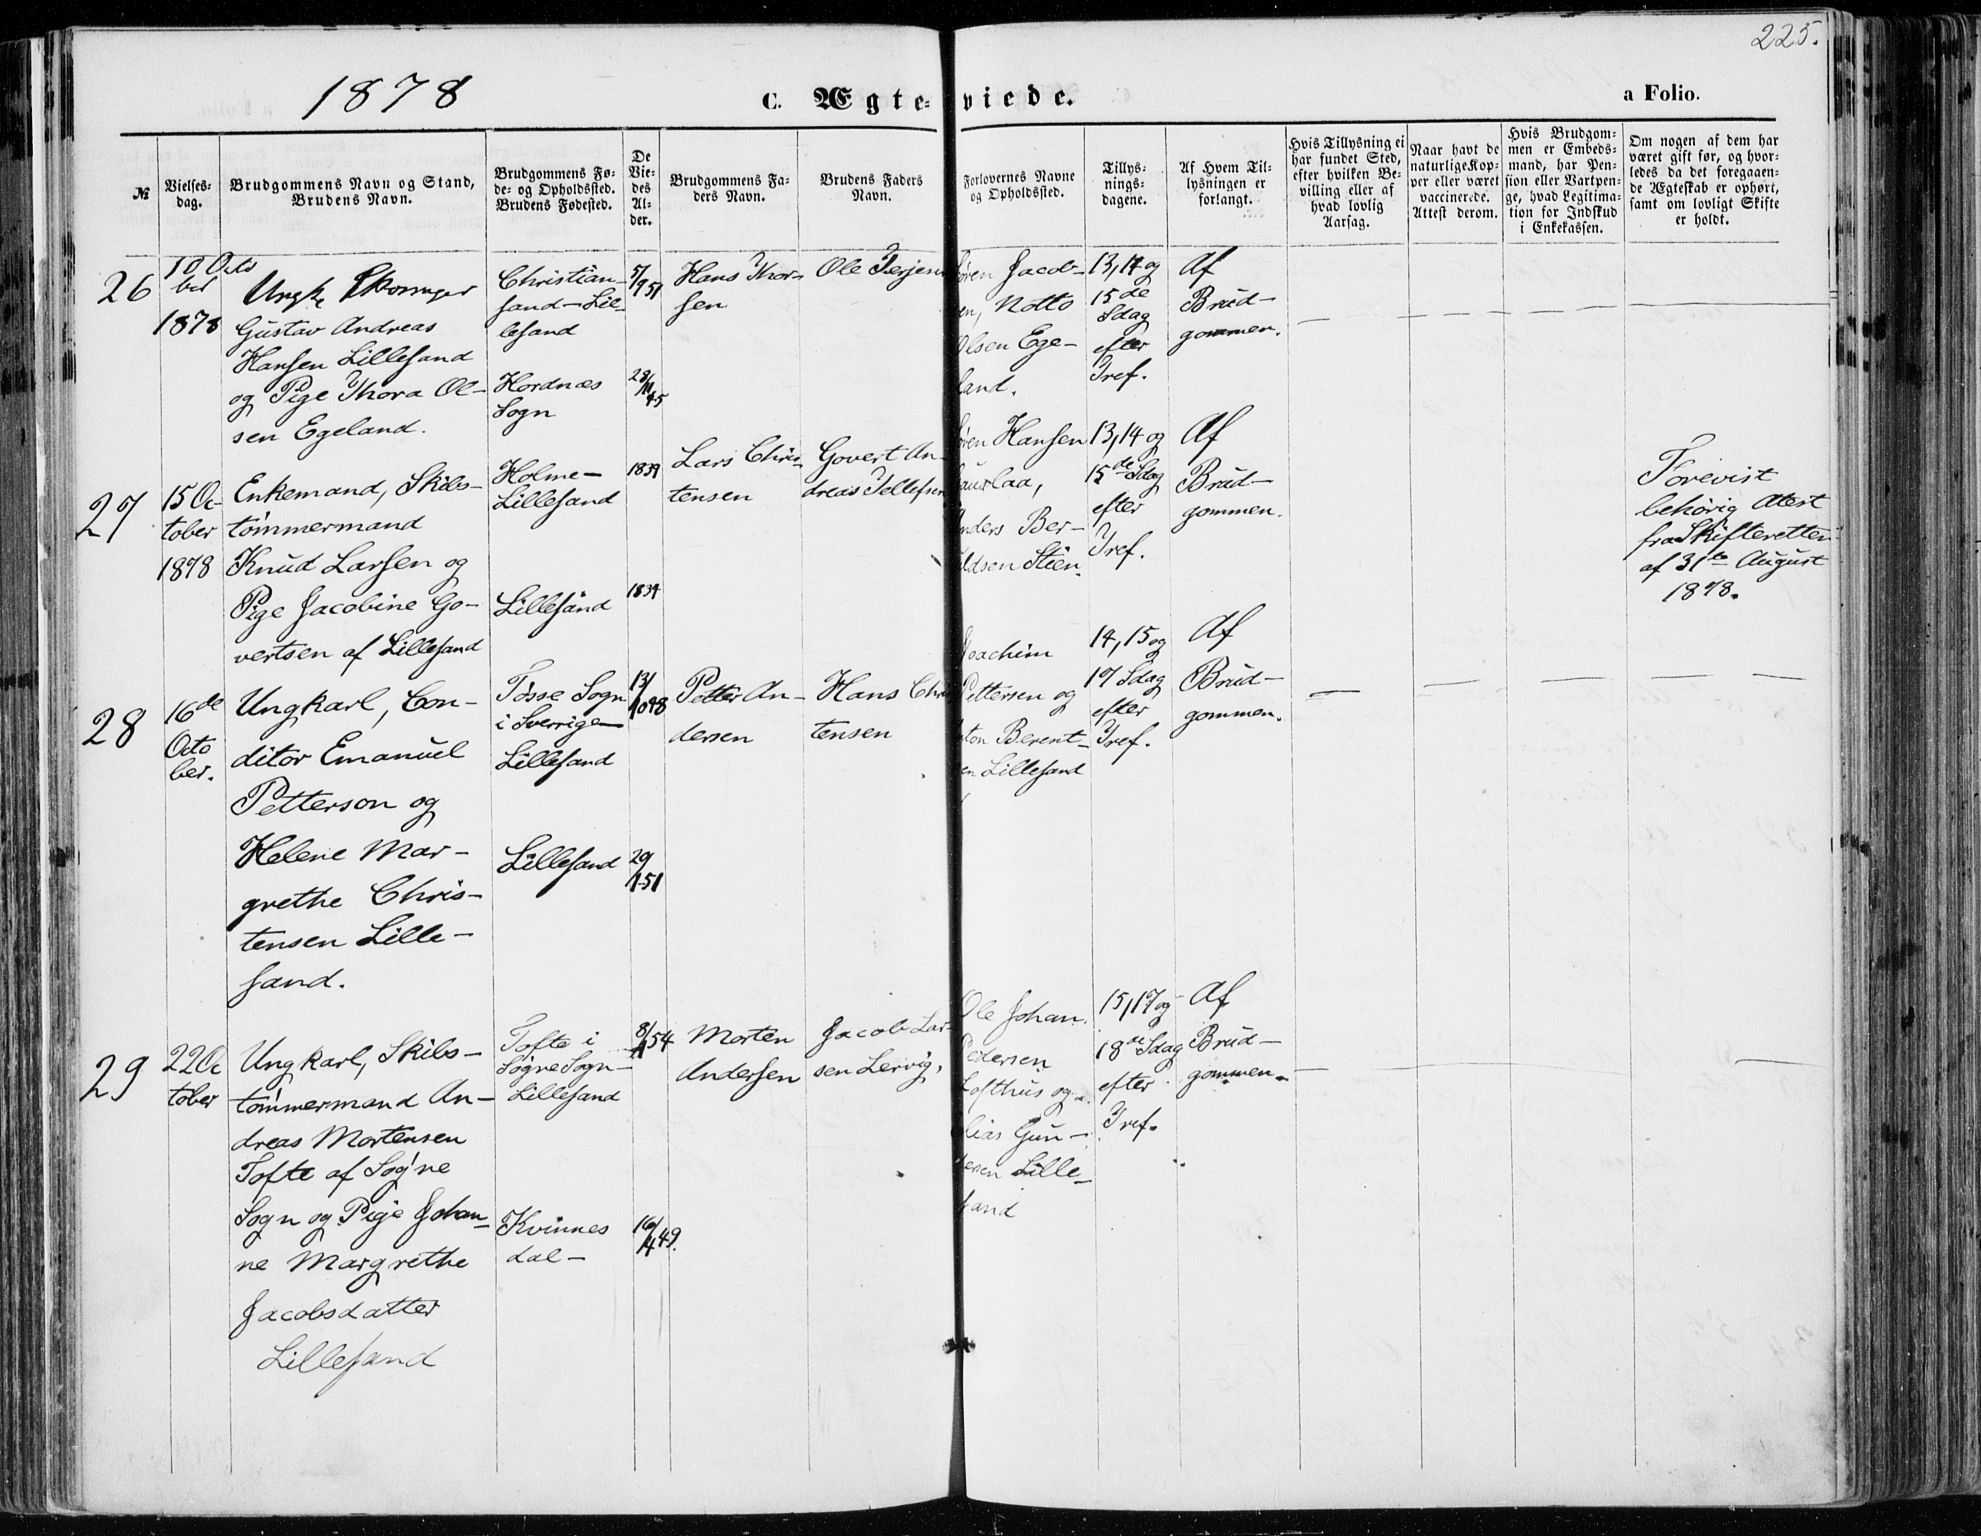 225.
1878
C. Ægte-viede.
a Folio.
№
Vielses-
dag.
Brudgommens Navn og Stand,
Brudens Navn.
Brudgommens Fø-
de- og Opholdssted.
Brudens Fødested.
De
Vie-
des
Al-
der.
Brudgommens Fa-
ders Navn.
Brudens Faders
Navn.
Forlovernes Navne
og Opholdssted.
Tillys-
nings-
dagene.
Af Hvem Til-
lysningen er
forlangt.
Hvis Tillysning ei
har fundet Sted,
efter hvilken Be-
villing eller af
hvad lovlig
Aarsag.
Naar havt de
naturlige Kop-
per eller været
vaccinerede.
Attest derom.
Hvis Brudgom-
men er Embeds-
mand, har Pen-
sion eller Vartpen-
ge, hvad Legitima-
tion for Indskud
i Enkekassen.
Om nogen af dem har
været gift før, og hvor-
ledes da det foregaaen-
de Ægteskab er ophørt,
samt om lovligt Skifte
er holdt.
26
10 Octo
ber
1878
Gustav Andreas
Hansen Lillesand
og Pige Thora Ol-
sen Egeland.
Christian-
sand - Lil-
lesand
Hordnæs
Sogn
5/9 51
28/11 45
Hans Thor-
sen
Ole Terjesen
Søren Jacob-
sen, Notto
Olsen Ege-
land.
13, 14 og
15de
Sdag
efter
Tref.
Af
Brud-
gommen.
27
15 Oc-
tober
1878
Enkemand, Skibs-
tømmermand
Knud Larsen og
Pige Jacobine Go-
vertsen af Lillesand
Holme-
Lillesand
Lillesand
1839
1834
Lars Chris-
tensen
Govert An-
dreas Tellefsen
Søren Hansen
Anders Ber-
13, 14 og
15de Sdag
efter
Tref.
Af
Brud-
gommen.
Forevist
behørig Atest
fra Skifteretten
af 31te August
1878.
28
16de
Octo
ber.
Ungkarl, Con-
ditor Emanuel
Petterson og
Helene Mar-
grethe Chris-
tensen Lille-
sand.
Tösse Sogn
i Sverrige-
Lillesand
Lillesand
13/10 48
29/1 51
Petter An-
dersen
Hans Chris
tensen
Joachim
Pettersen og
Anton Berent-
sen Lillesand
14, 15 og
17 Sdag
efter
Tref.
Af
Brud-
gommen.
29
22 Oc
tober
Ungkarl, Skibs-
tømmermand An-
dreas Mortensen
Tofte af Søgne
Sogn og Pige Johan-
ne Margrethe
Jacobsdatter
Lillesand
Tofte i
Søgne Sogn-
Lillesand
Kvinnes
dal-
8/11 54
16/4 49.
Morten
Andersen
Jacob Lar-
sen Lervig,
Ole Johan
Pedersen
Lofthus og
Elias Gun-
dersen Lille-
sand
15, 17 og
18de Sdag
efter
Tref.
Af
Brud-
gommen.